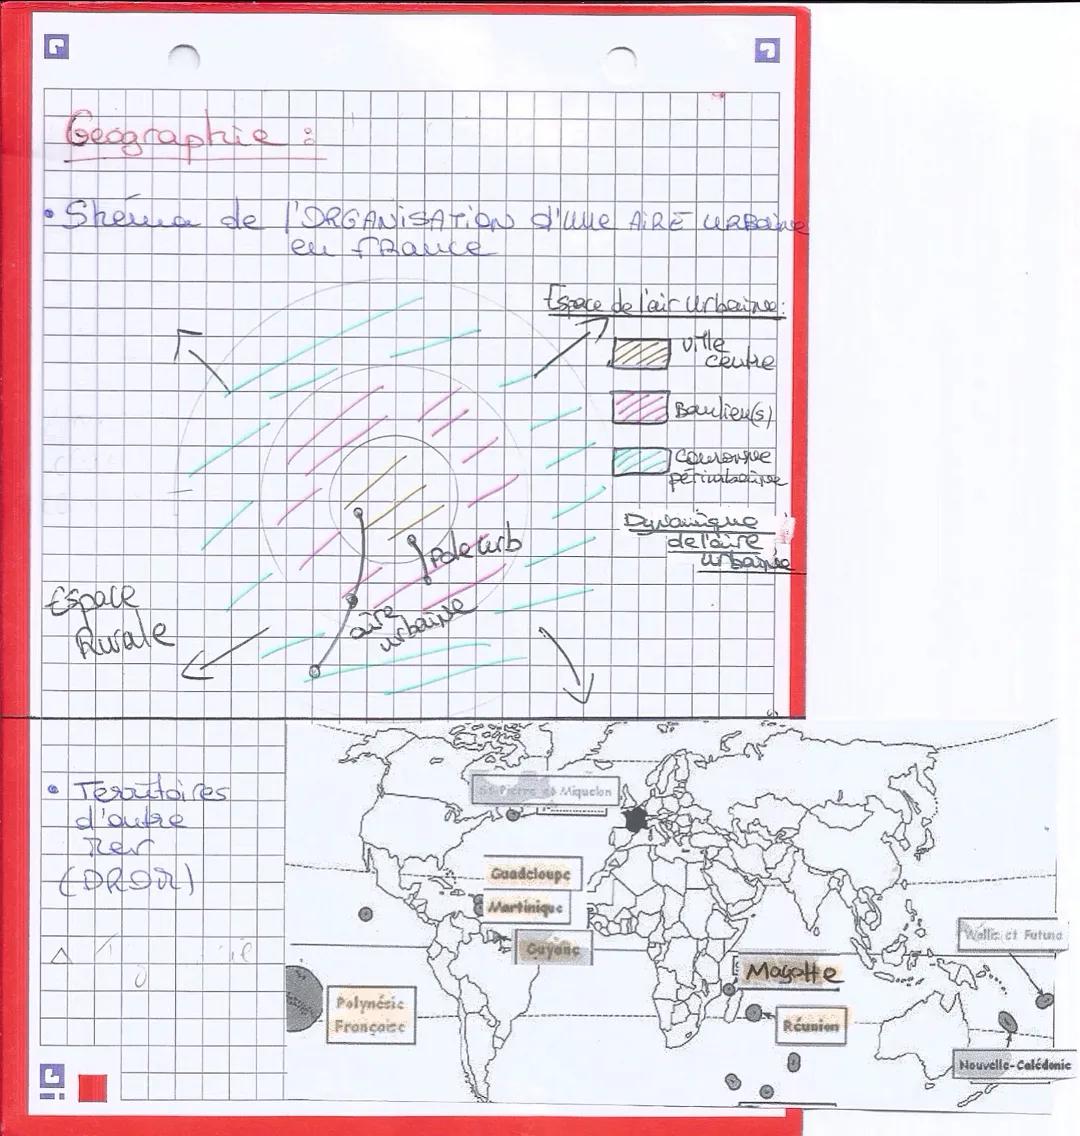 Geographie :
• Shéma de l'ORGANISATION d'une AIRE URBaine
en fRance
Espace de l'air urbaine:
ville
centre
Banlieu(s)
couronne
périurbaine
Dynamique
de l'aire
urbaine
Pole urb
aire
urbaine
Espace
Rurale
• Territoires
d'outre
Mer
(DROM)
St Pierre et Miquelon
Guadeloupe
Martinique
Guyane
Mayotte
Réunion
Polynésie
Française
Wallis et Futuna
Nouvelle-Calédonie